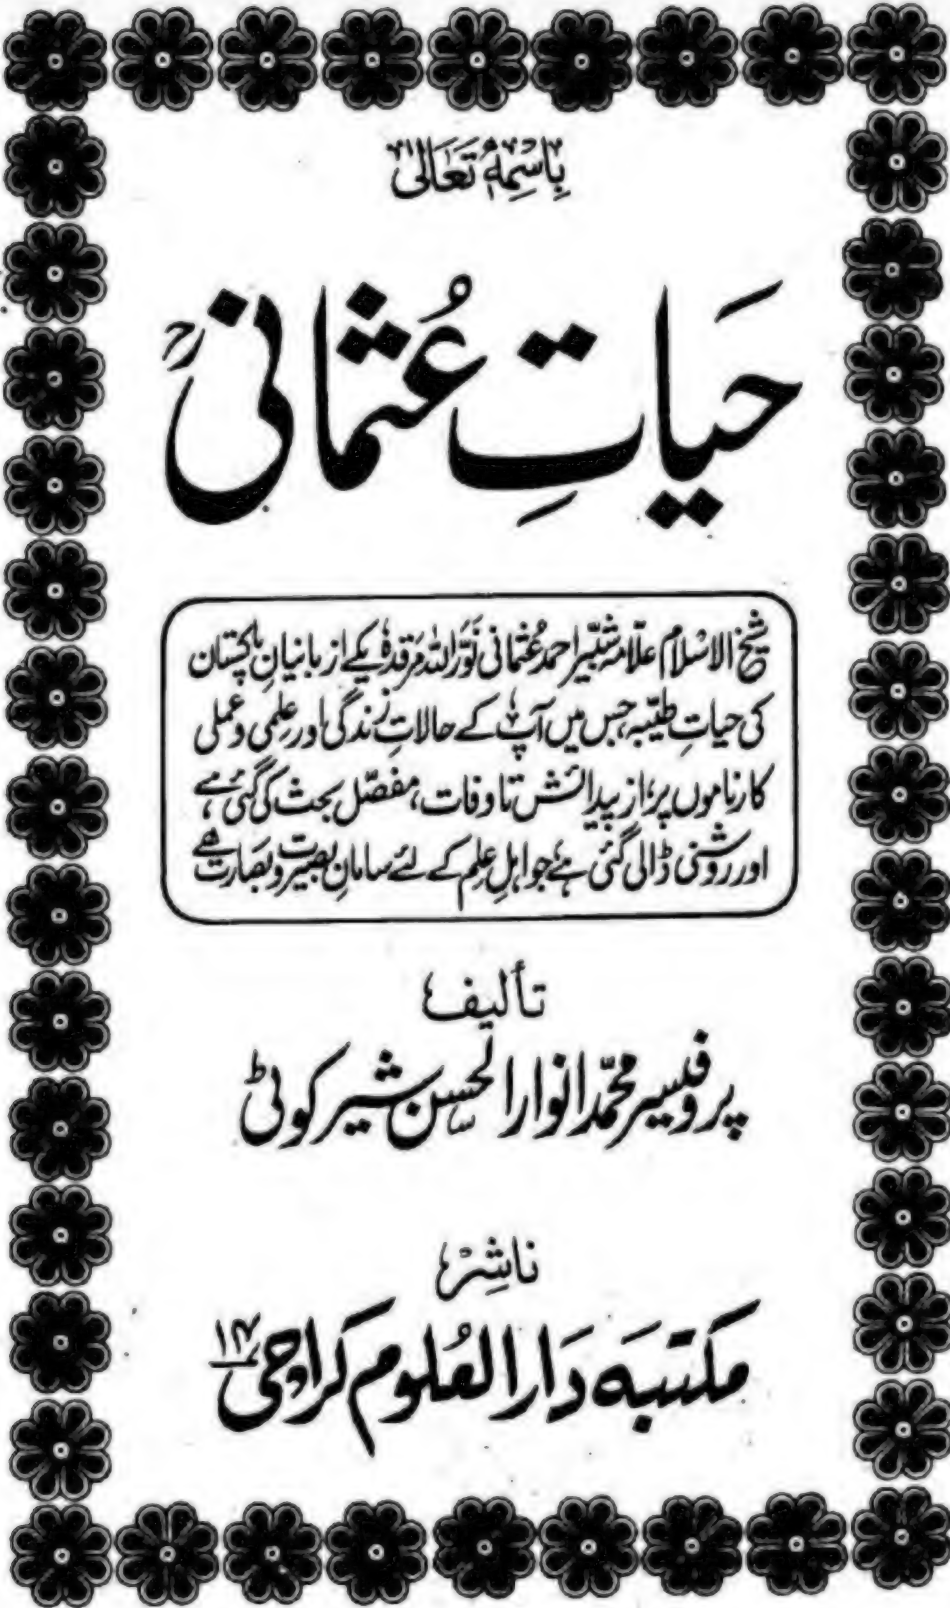 بِاسْمِهٖ تَعَالٰی
حَیاتِ عُثمانی ؒ
شیخ الاسلام علّامہ شبّیر احمد عُثمانی نَوَّرَ اللّٰہ مَرقدہٗ یکے از بانیانِ پاکستان
کی حیاتِ طیّبہ جس میں آپؒ کے حالاتِ زندگی اور علمی و عملی
کارناموں پر، از پیدائش تا وفات، مفصّل بحث کی گئی ہے
اور روشنی ڈالی گئی ہے جو اہلِ علم کے لئے سامانِ بصیرت و بصارت ہے
تألیف
پروفیسر محمّد انوار الحسن شیرکوٹی
ناشر
مکتبہ دَارالعُلوم کراچی ۱۴